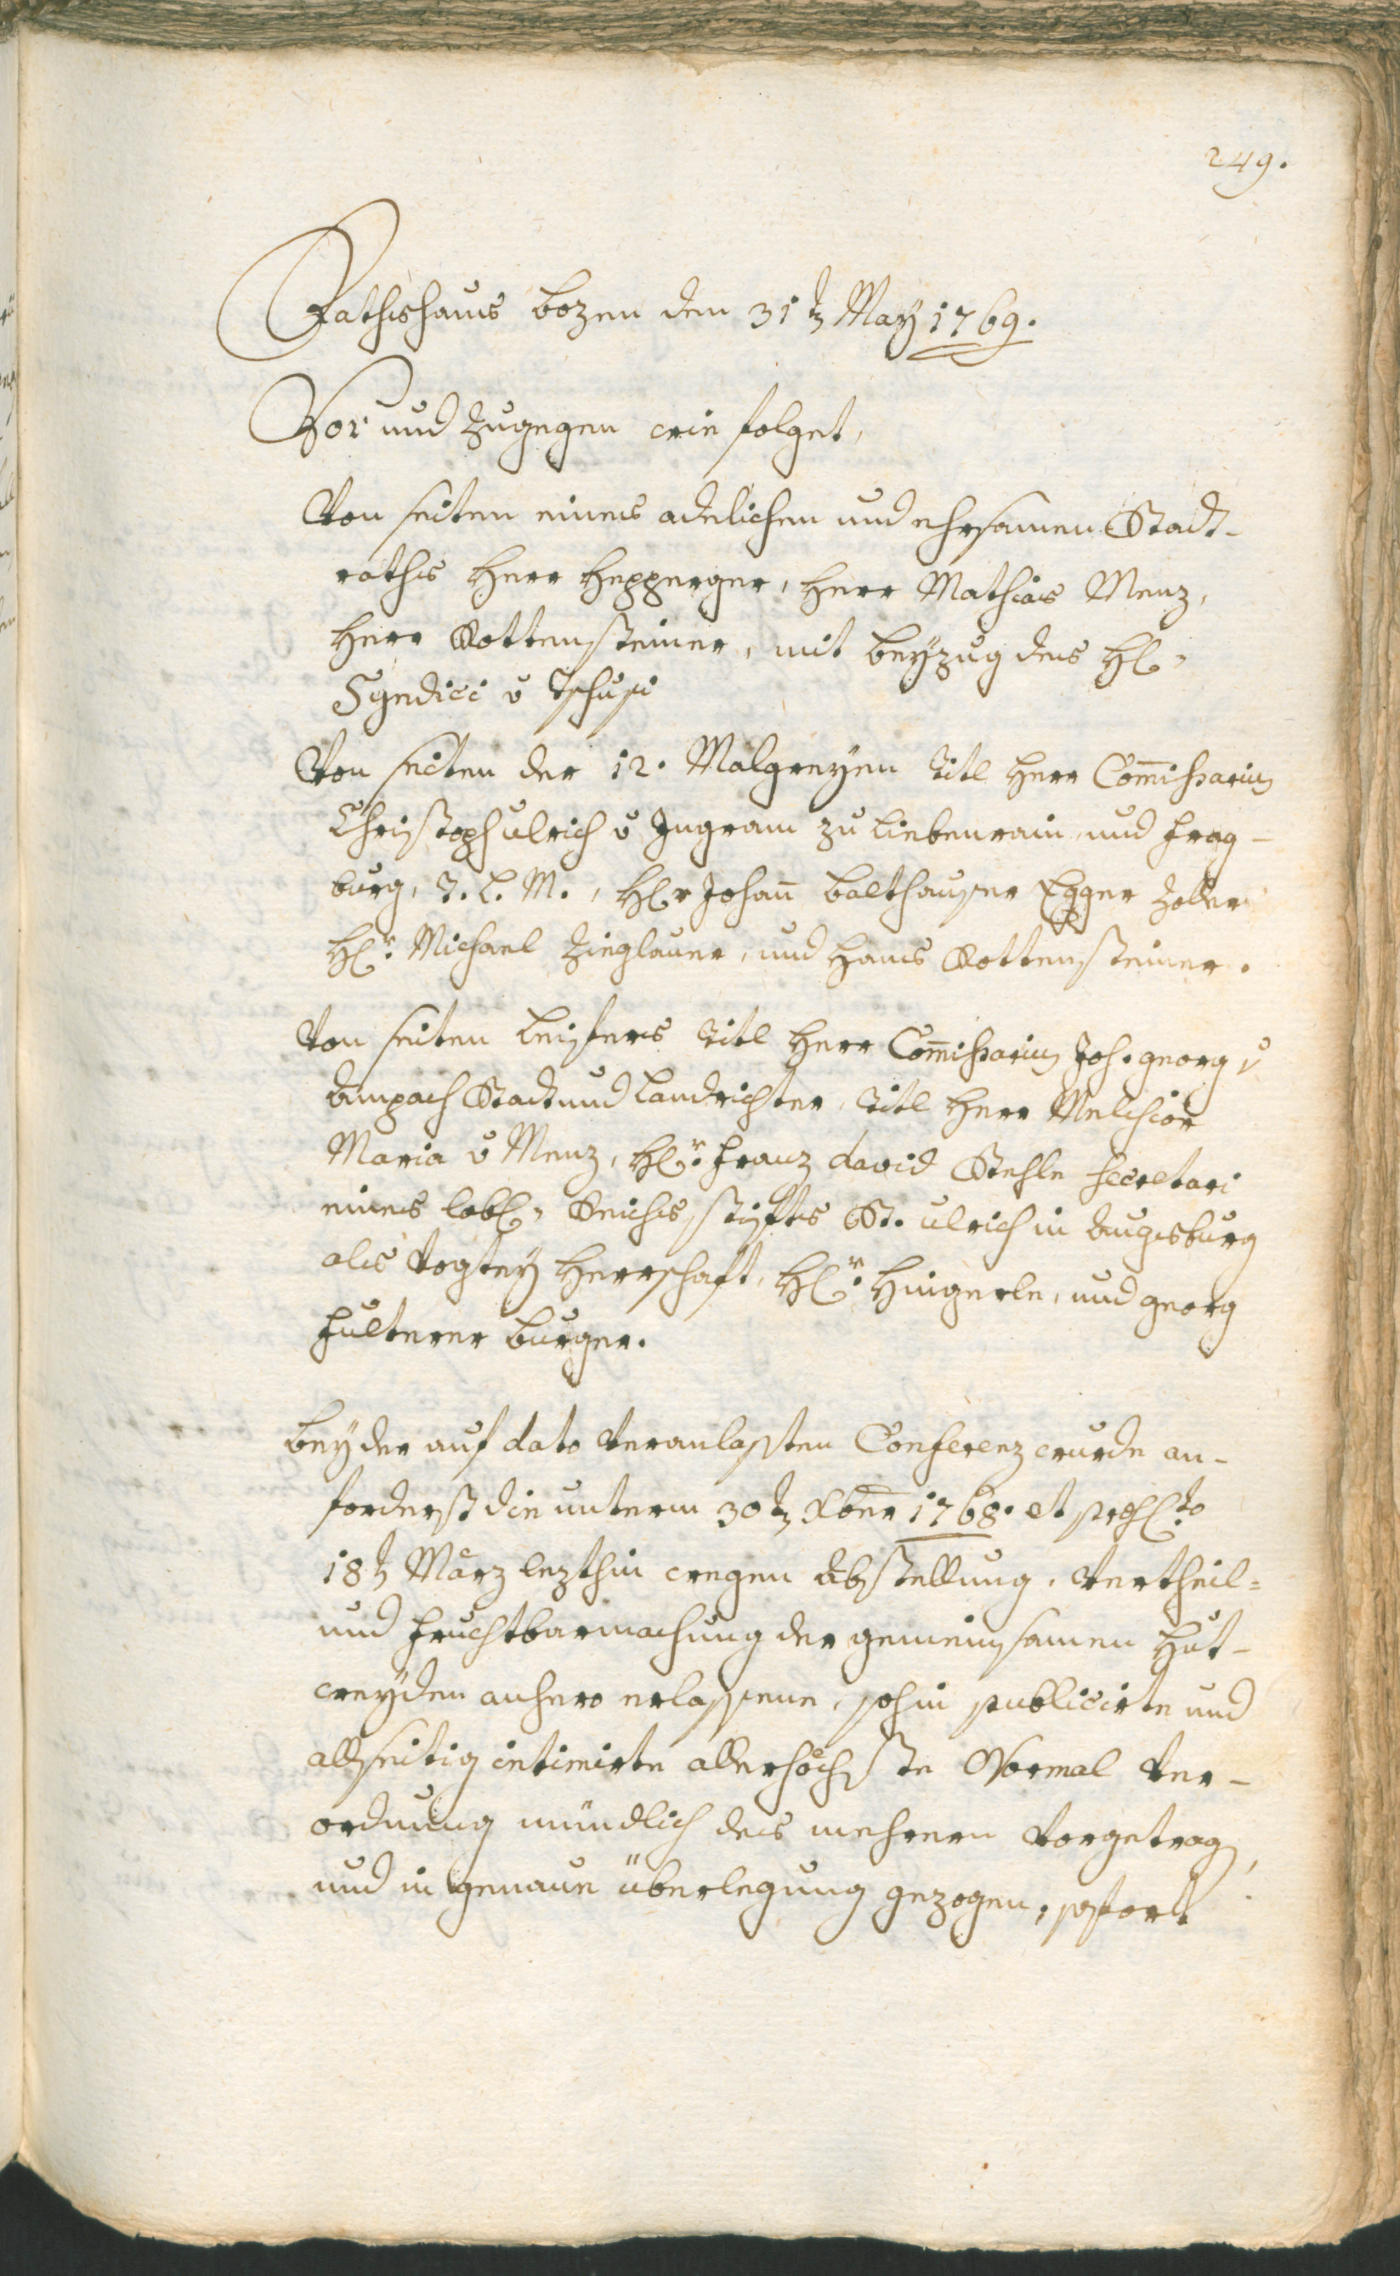 249.
Rathshaus bozen den 31t May 1769.
Vor und zugegen wie folget,
Von seiten eines adelichen und ehrsamen Stadt-
raths Herr Hepperger, Herr Mathias Menz,
Herr Rottensteiner, mit beyzug des H:
Syndici v Tschusi
Von seiten der 12. Malgreyen Titl Herr Com̅issarius
Christoph ulrich v Ingram zu liebenrain und frag-
burg, T. L. M., Hr Johan̅ balthauser Egger zoller
Hr: Michael Zieglauer, und Hans Rottensteiner.
Von seiten leifers Titl Herr Com̅issarius Joh. georg v
ampach Stadt und landrichter, Titl Herr Melchior
Maria v Menz, Hr: franz david Stehle secretari
eines lobl: Reichs stifts St. ulrich in augsburg
als Vogtey Herrschaft, Hr: Hingerle, und georg
fulterer burger.
bey der auf dato veranlaßten Conferenz wurde an-
forderst die unterm 30t Xber 1768. et
18t März lezthin wegen abstellung, Vertheil=
und fruchtbarmachung der gemeinsamen Hut-
weyden anhero erlassene, sohin publicirte und
allseitig intimirte allerhöchste Normal Ver-
ordnung mündlich des mehrern vorgetrag,
und in genaue überlegung gezogen, sofort